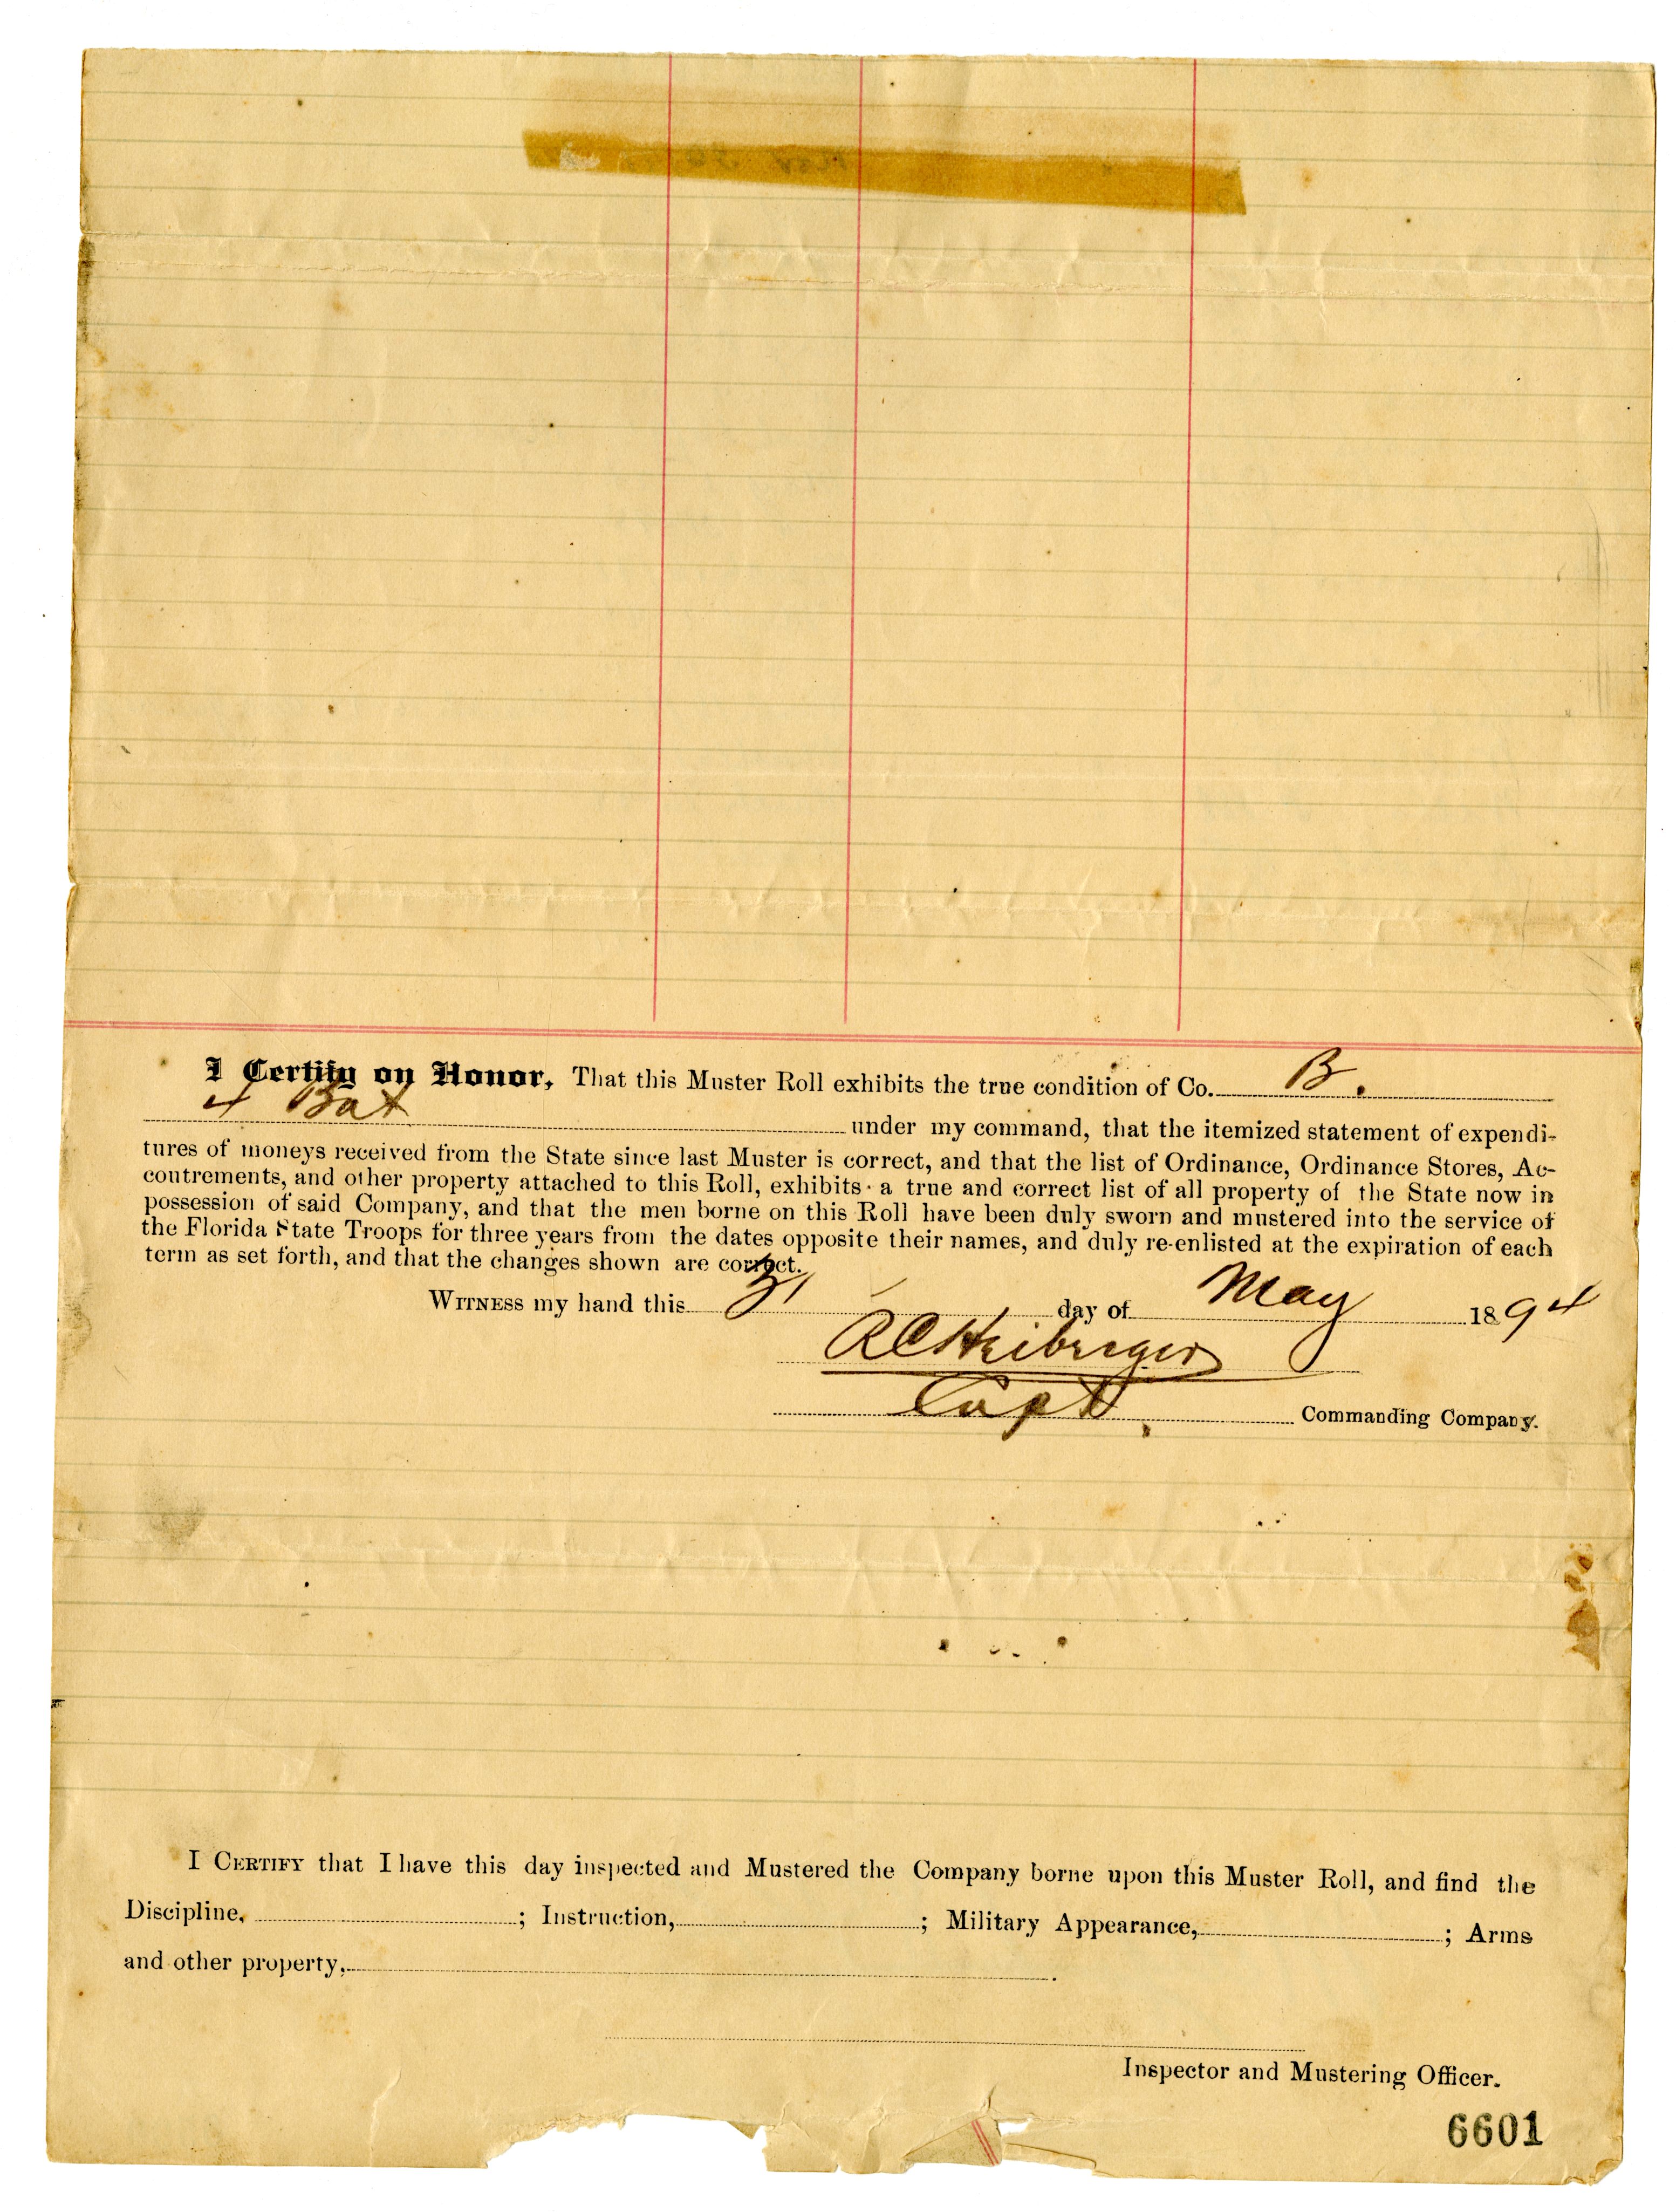 I Certify on Honor, That this Muster Roll exhibits the true condition of Co. B.
4 Bat under my command, that the itemized statement of expendi-
tures of moneys received from the State since last Muster is correct, and that the list of Ordinance, Ordinance Stores, Ac-
coutrements, and other property attached to this Roll, exhibits a true and correct list of all property of the State now in
possession of said Company, and that the men borne on this Roll have been duly sworn and mustered into the service of
the Florida State Troops for three years from the dates opposite their names, and duly re-enlisted at the expiration of each
term as set forth, and that the changes shown are correct.
WITNESS my hand this 31 day of May 1894
Capt. Commanding Company.
I CERTIFY that I have this day inspected and Mustered the Company borne upon this Muster Roll, and find the
Discipline, ; Instruction, ; Military Appearance, ; Arms
and other property, .
Inspector and Mustering Officer.
6601